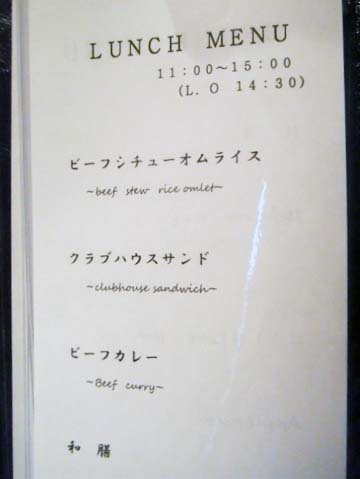 LUNCH MENU
11:00～15:00
(L. O 14:30)
ビーフシチューオムライス
～beef stew rice omlet～
クラブハウスサンド
～clubhouse sandwich～
ビーフカレー
～Beef curry～
和 膳